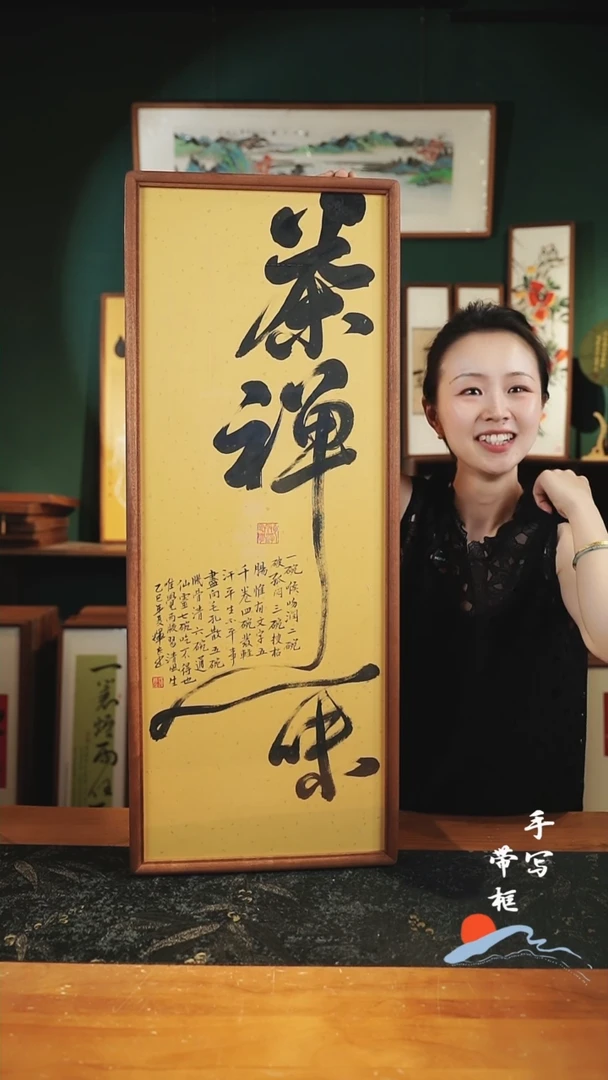 茶禅一味
一碗喉吻潤二碗
破孤闷三碗搜枯
腸惟有文字五
千卷四碗發輕
汗平生不平事
盡向毛孔散五碗
肌骨清六碗通
仙靈七碗吃不得也
唯覺两腋習清風生
乙巳年夏
一蓑煙雨任
手写
带框